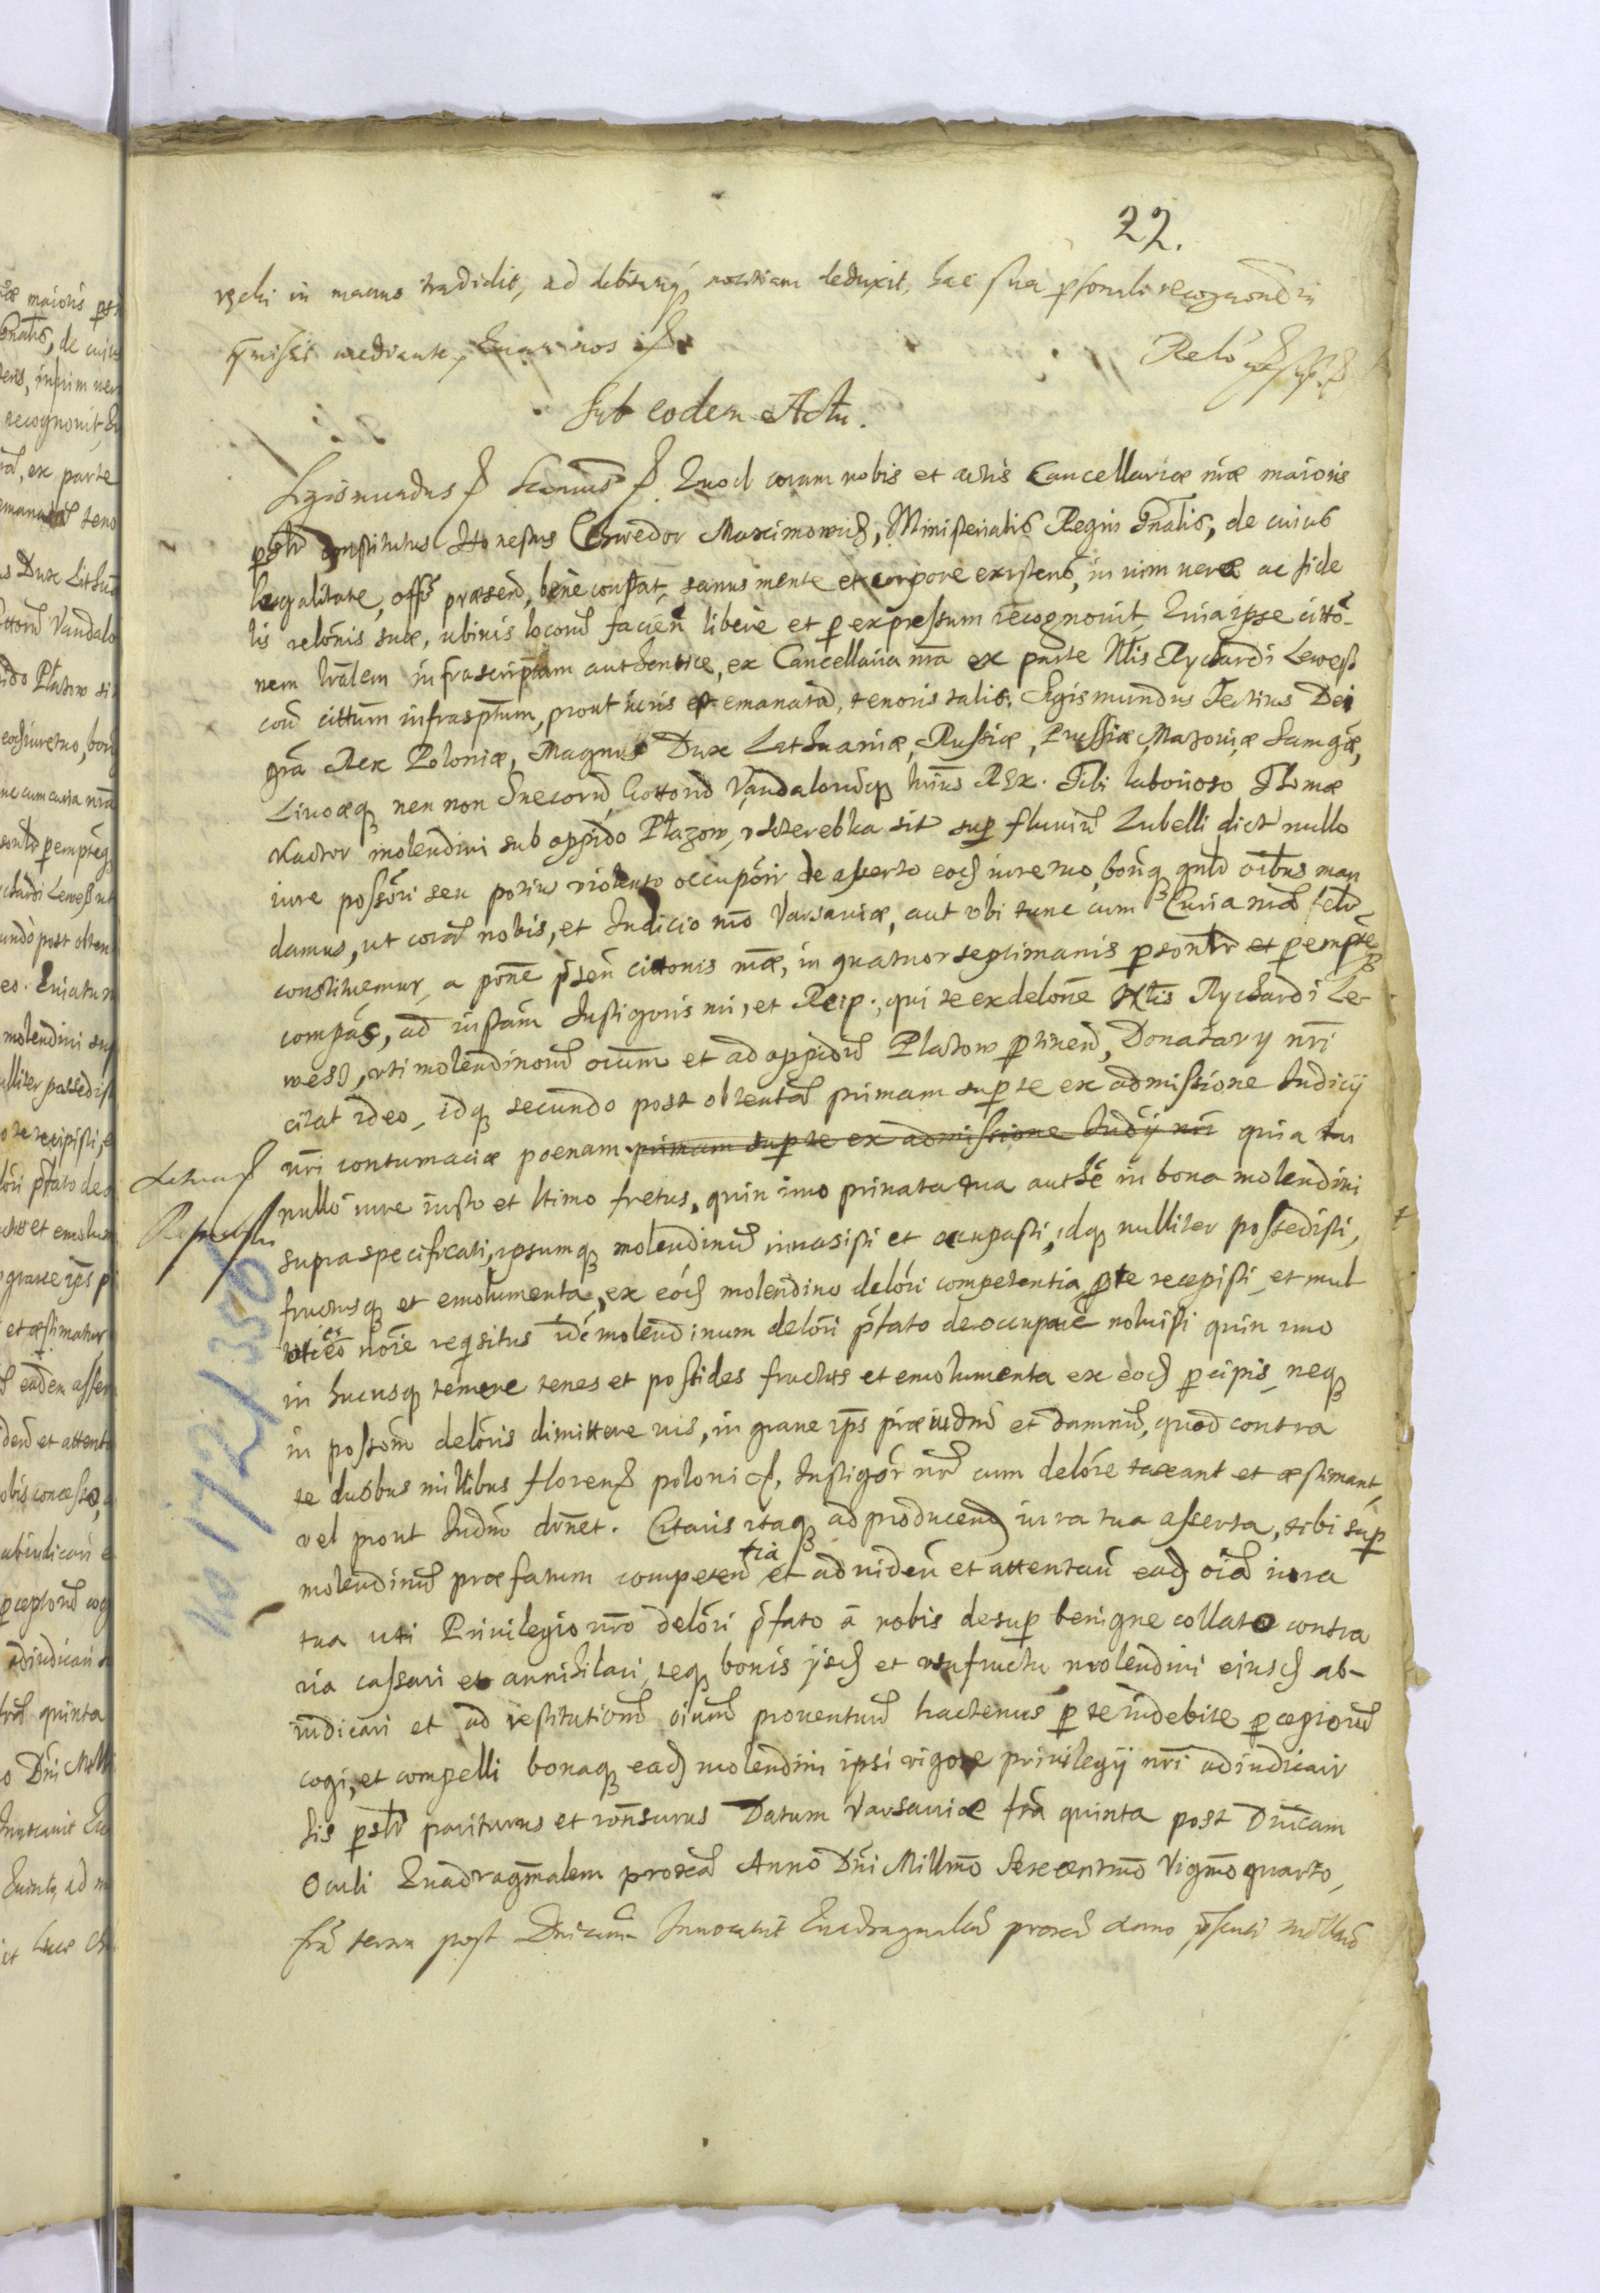 22.
in manus tradidit, ad debitamq notitiam deduxit, hac sua psonali recognone
mediante, Quas nos
Relo
Sub eodem Actu.
Sigismundus Quod coram nobis et actis Cancellariæ nræ maioris
constitutus Honestus Chwedor Maximowicz, Ministerialis Regni Gnalis, de cuius
legalitate, officio præsend, bene constat, sanus mente et corpore existens, in vim veræ ac fide
lis relonis suæ, ubivis locorum facien libere et p expressum recognovit, Quia ipse citto-
nem lralem infrascriptam authentice, ex Cancellaria nra ex parte Nlis Rychardi Lewess
cou cittum infrasptum, prout iuris est emanatã, tenoris talis. Sigismundus Tertius Dei
gra Rex Poloniæ, Magnus Dux Lithuaniæ, Russiæ, Prussiæ, Mazoviæ Samgiæ,
Livoæq nec non Suecorũ Gottorũ Vandalorũq hrius REX. Tibi laborioso Thomæ
Kuchor molendini sub oppido Płazow, v Scerebka sit sup fluviũ Lubelli dict nullo
iure possori seu potiu violento occupori de asserto eod iure tuo, bonq gntr oibus man
damus, ut corã nobis, et Iudicio nro Varsaviæ, aut ubi tunc cum Curia nrã feltr
constituemur, a pone psen cittonis nræ, in quatuor septimanis psontr et pempte
compas, ad instãm Instigoris nri, et Reip. qui te ex delone Nlis Rychardi Le-
wess, uti molendinorũ oium et ad oppidũ Plazow ptinend, Donatary nri
citat ideo, idq secundo post obtentã primam sup te ex admissione Iudicij
nri contumaciæ poenam primam sup te ex admissione Iudij nri quia tu
nullo iure iusto et ltimo fretus, quin imo privata tua authe in bona molendini
supraspecificati, ipsumq molendinũ invasisti et occupasti, idq nulliter possedisti,
fructusq et emolumenta, ex eod molendino delori competentia p te recepisti, et mul
oties eo noie reqsitus idẽ molendinum delori pfato deoccupare noluisti quin imo
in hucusq temere tenes et possides fructus et emolumenta ex eod pcipis, neq
in possom deloris dimittere vis, in grave ips præiudm et damnũ, quod contra
te duobus millibus floren polonic, Instigor nr cum delore taxant et æstimant,
vel prout Iudm dvnet. Citaris itaq ad producend iura tua asserta, tibi sup
molendinũ præfatum competentia et ad viden et attentan ead oia iura
tua uti Privilegio nro delori pfato a nobis desup benigne collato contra
ria cassari et annihilari, teq bonis ijsd et usufructu molendini eiusd ab-
iudicari et ad restitutionẽ oium proventuũ hactenus p te indebite pceptorũ
cogi, et compelli bonaq ead molendini ipsi vigore privilegij nri adiudicari
Sis pstr pariturus et ronsurus Datum Varsaviæ fria quinta post Dnicam
Oculi Quadragmalem proxã Anno Dni Millmo Sexcentmo Vigmo quarto,
fria tertia post Dnicam Invocavit Quadragmalem proxã Anno psenti
No 1721/356